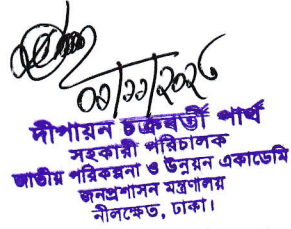 ০৯/১১/২০২৫
দীপায়ন চক্রবর্তী পার্থ
সহকারী পরিচালক
জাতীয় পরিকল্পনা ও উন্নয়ন একাডেমি
জনপ্রশাসন মন্ত্রণালয়
নীলক্ষেত, ঢাকা।